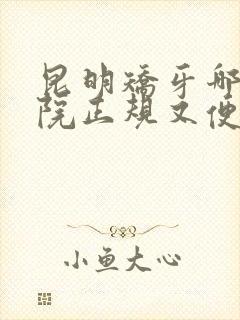 昆明矫牙哪
院正规又便
小鱼大心